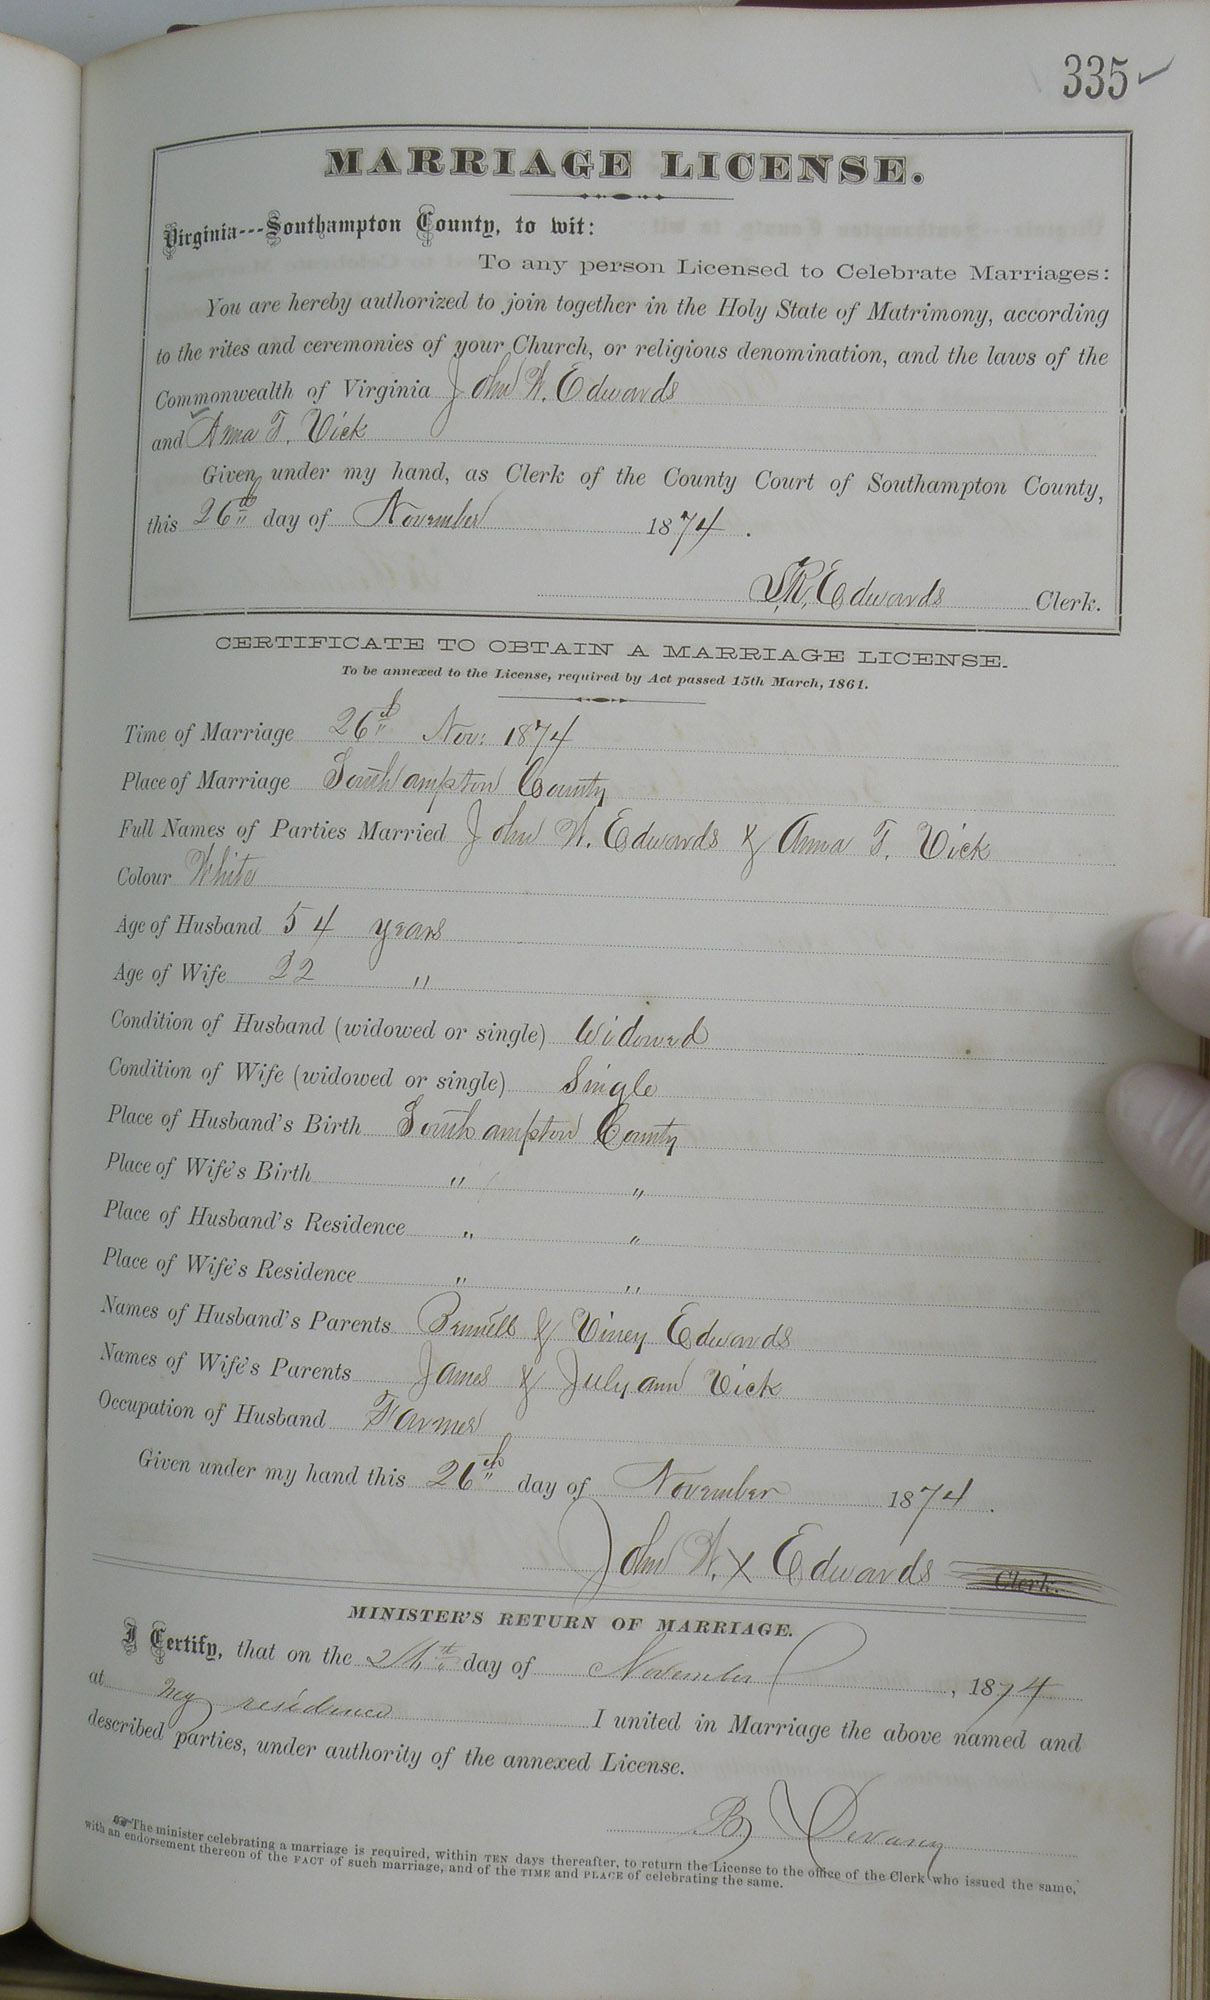 335
MARRIAGE LICENSE.
Virginia---Southampton County, to wit:
To any person Licensed to Celebrate Marriages:
You are hereby authorized to join together in the Holy State of Matrimony, according
to the rites and ceremonies of your Church, or religious denomination, and the laws of the
Commonwealth of Virginia John W. Edwards
and Anna T. Vick
Given under my hand, as Clerk of the County Court of Southampton County,
this 26th day of November 1874.
Edwards Clerk.
CERTIFICATE TO OBTAIN A MARRIAGE LICENSE.
To be annexed to the License, required by Act passed 15th March, 1861.
Time of Marriage 26th Nov: 1874
Place of Marriage Southampton County
Full Names of Parties Married John W. Edwards & Anna T. Vick
Colour White
Age of Husband 54 years
Age of Wife 22 "
Condition of Husband (widowed or single) Widowed
Condition of Wife (widowed or single) Single
Place of Husband's Birth Southampton County
Place of Wife's Birth " "
Place of Husband's Residence " "
Place of Wife's Residence " "
Names of Husband's Parents & Viney Edwards
Names of Wife's Parents James & July ann Vick
Occupation of Husband Farmer
Given under my hand this 26th day of November 1874.
John W. X Edwards Clerk.
MINISTER'S RETURN OF MARRIAGE.
I Certify, that on the 26th day of November, 1874
at my residence I united in Marriage the above named and
described parties, under authority of the annexed License.
B Devany
The minister celebrating a marriage is required, within TEN days thereafter, to return the License to the office of the Clerk who issued the same,
with an endorsement thereon of the FACT of such marriage, and of the TIME and PLACE of celebrating the same.